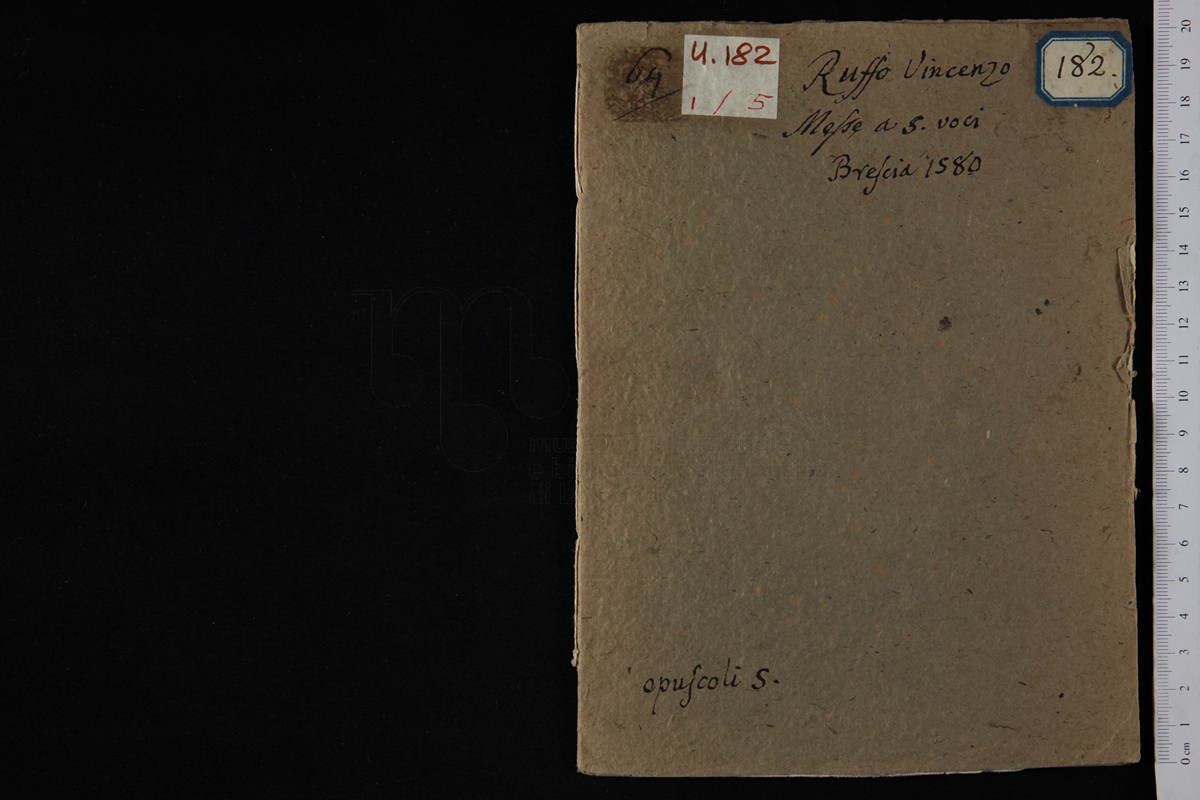 64
U.182
1 / 5
Ruffo Vincenzo
182.
Meſſe a 5. voci
Breſcia 1580
opuſcoli 5.
20
19
18
17
16
15
14
13
12
11
10
9
8
7
6
5
4
3
2
1
0 cm